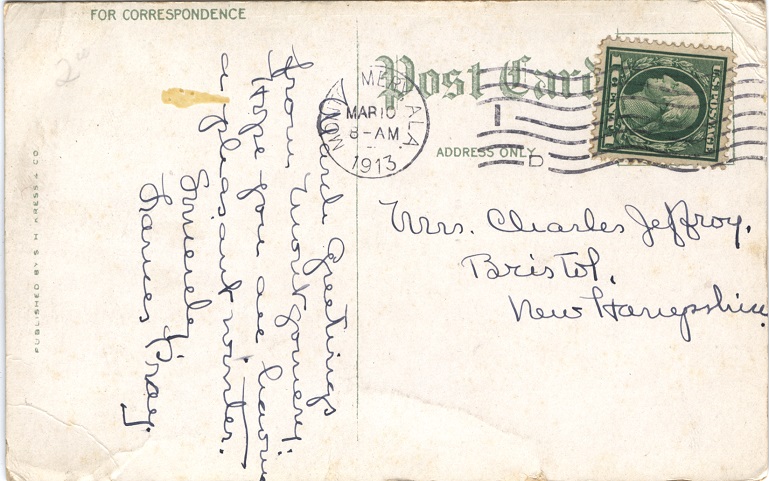 FOR CORRESPONDENCE
Post Card
ADDRESS ONLY
MONTGOMERY, ALA.
MAR 10
8-AM
1913
1
D
U.S. POSTAGE
1 CENT 1
March Greetings
from Montgomery.
Hope you are having
a pleasant winter.
Sincerely,
Frances Pray.
Mrs. Charles Jeffroy.
Bristol,
New Hampshire
PUBLISHED BY S. H. KRESS & CO.